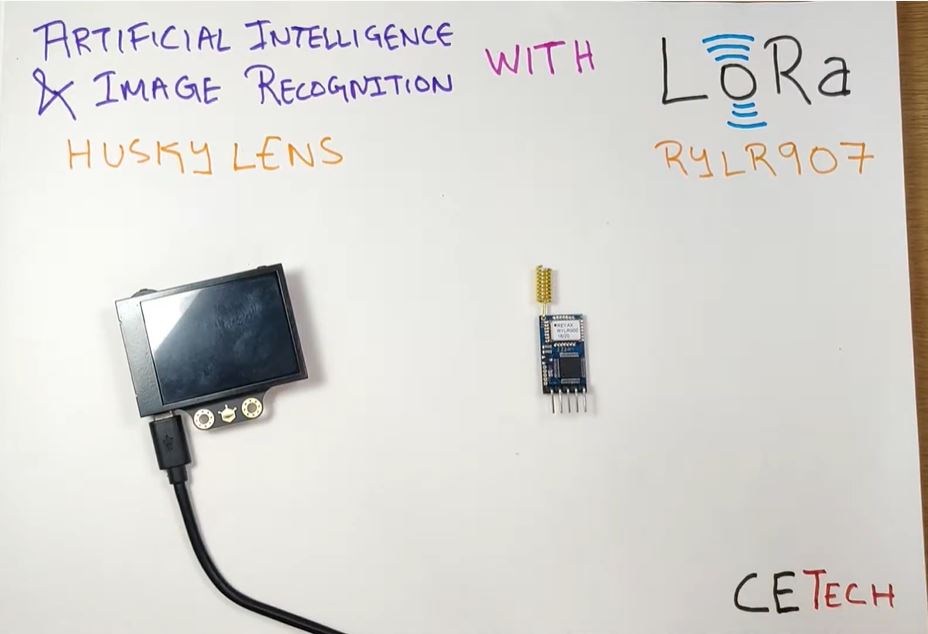 ARTIFICIAL INTELLIGENCE
& IMAGE RECOGNITION
WITH
LoRa
HUSKY LENS
RYLR907
REYAX
CETECH